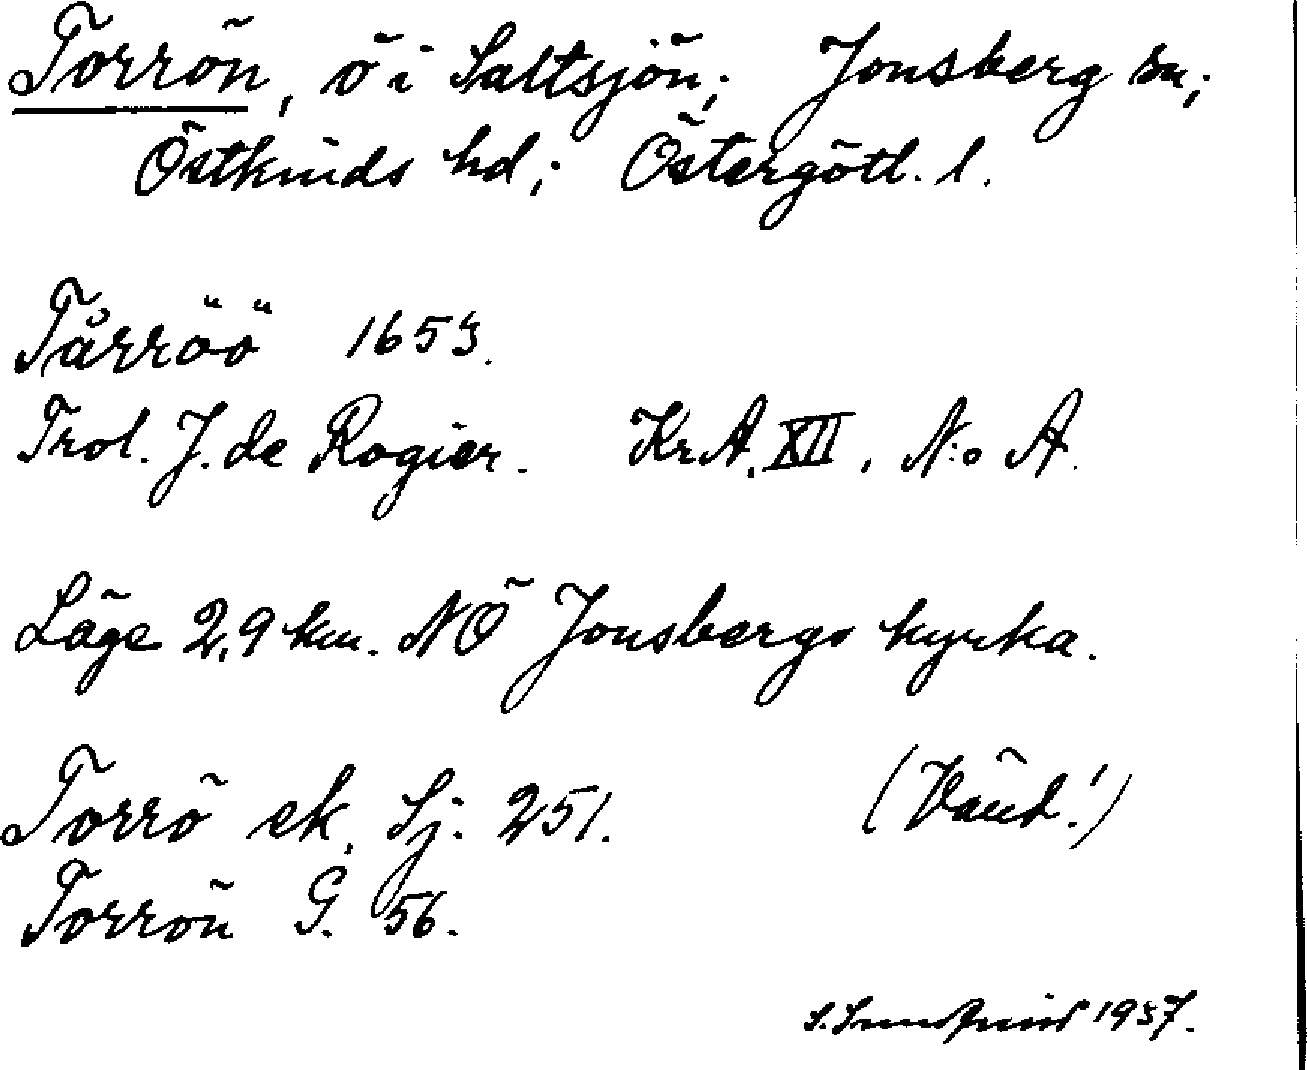 Torrön, ö i Saltsjön; Jonsberg sn;
Östkinds hd; Östergötl. l.
Tårröö 1653.
Trol. J. de Rogier. Kr.A. XII, N:o A.
Läge 2,9 km. NÖ Jonsbergs kyrka.
Torrö ek. Sj. 251. (Vänd!)
Torrön G. 56.
S. 1937.